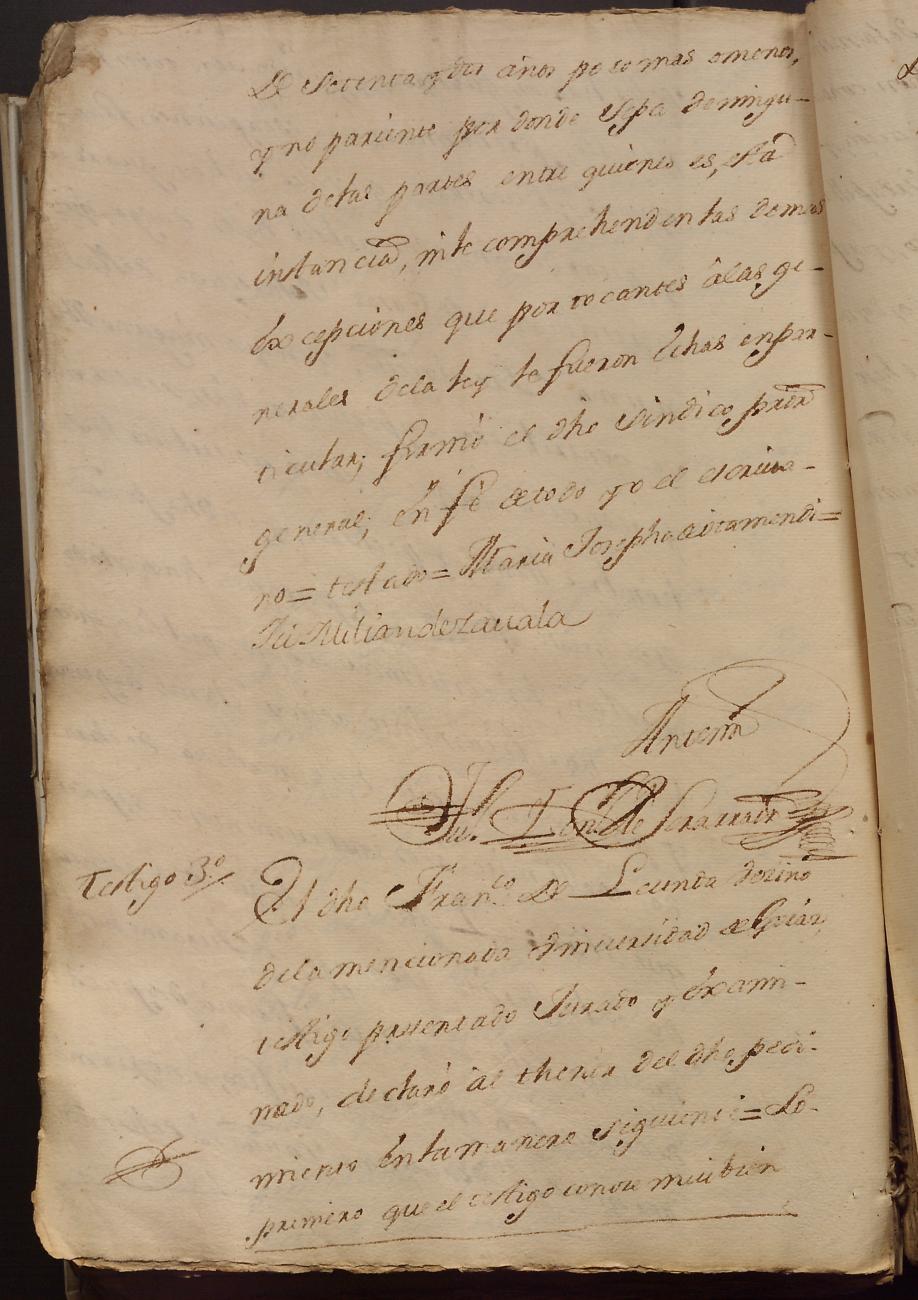 De setenta y dos años poco mas omenos,
y no pariente por donde sepa de ningu-
na delas partes entre quienes es, esta
instancia, nile comprehenden las demas
excepciones que por tocantes âlas ge-
nerales dela ley le fueron êchas enpar-
ticular; firmó el dho sindico procor
general; en fé de todo yo el escriva-
no = testado = Maria Josepha de Otamendi =
Milian de Zauala
Antemi
Testigo 3º
El dho Franco. De Lcunda vecino
dela mencionada Universidad de Goiaz,
testigo presentado Jurado y êxami-
nado, declaró al thenor del dho pedi-
miento enla manera siguiente = Lo
primero que el testigo conoce mui bien